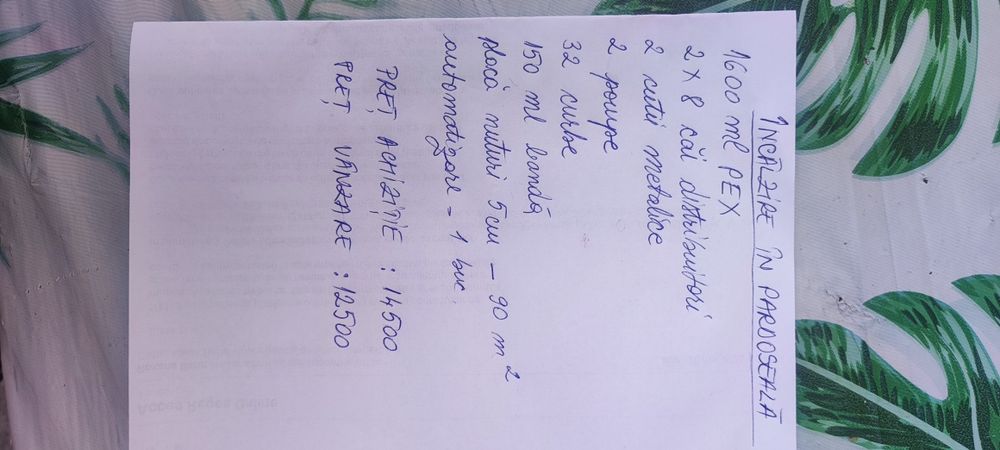 ÎNCĂLZIRE ÎN PARDOSEALĂ
1600 ml PEX
2 x 8 căi distribuitori
2 cutii metalice
2 pompe
32 curbe
150 ml bandă
placă nuturi 5cm – 90 m²
automatizare – 1 buc.
PREȚ ACHIZIȚIE : 14500
PREȚ VÂNZARE : 12500